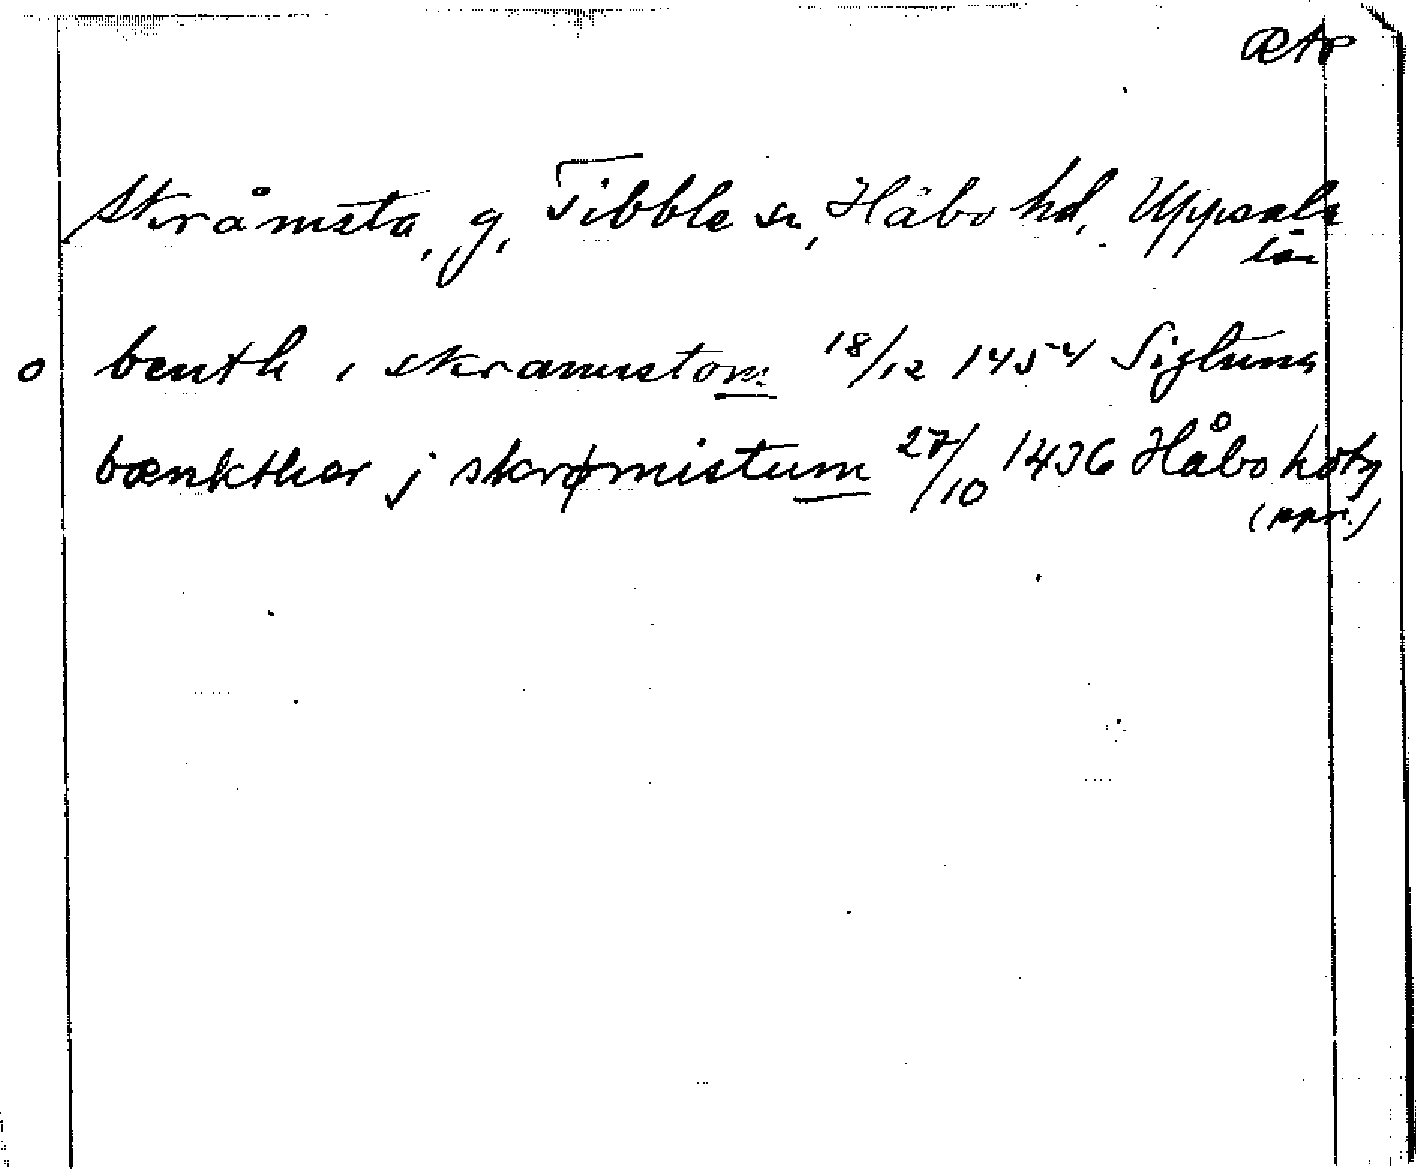 ÆAP
Skråmsta, g, Tibble sn, Håbo hd, Uppsala
län
o benth i skramestom 18/12 1454 Sigtuna
bænkther j skrømistum 27/10 1436 Håbo hdtg
(ppr.)